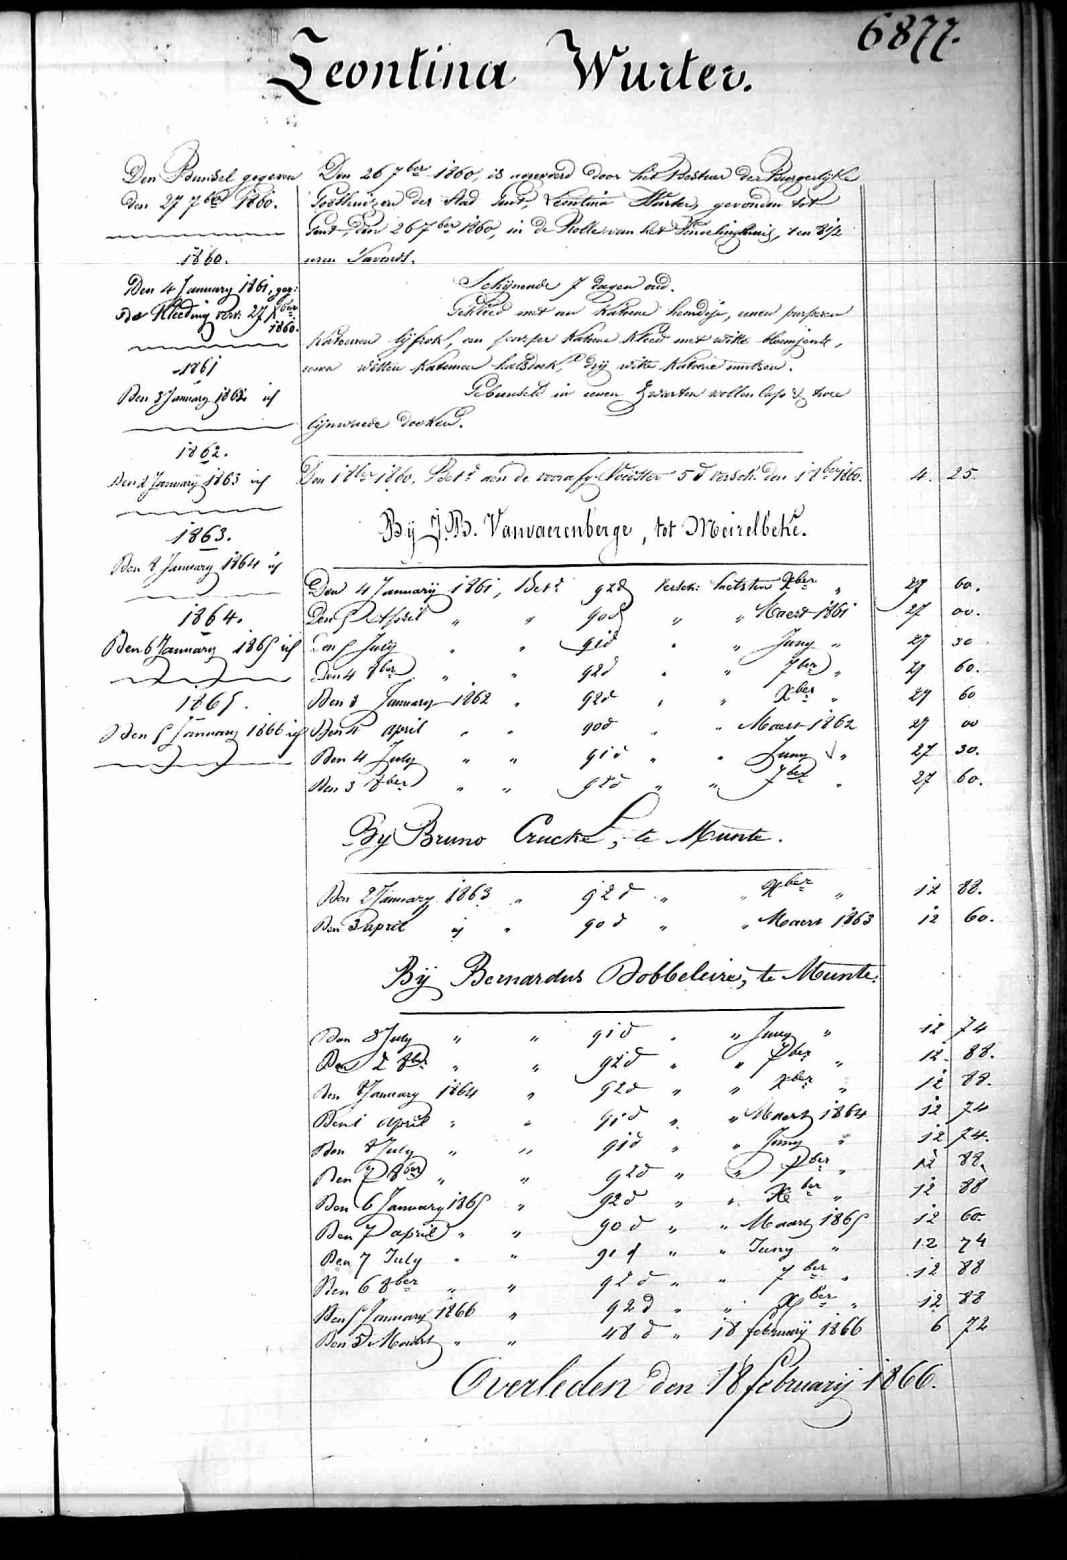 6877.
Leontina Wurter.
Den Bundel gegeven
den 27 7ber 1860.
1860.
Den 4 January 1861, geg:
de Kleeding vers: 27 7ber
1860.
1861
Den 3 January 1862 id
1862.
Den 2 January 1863 id
1863.
Den 8 January 1864 id
1864.
Den 6 January 1865 id
1865.
Den 5 January 1866 id
Den 26 7ber 1860, is door het Bestuur der Burgerlyke
Godshuizen der Stad Gent, Leontina Wurter, gevonden tot
Gent, den 26 7ber 1860, in de Rolle van het Vondelinghuis, ten 8 1/2
uren 'savonds.
Schijnende 7 dagen oud.
Gekleed met een katoene hemdeje, eenen purperen
Katoenen lijfrok, een purper katoene kleed met witte bloemjens,
eenen witten katoenen halsdoek, drij witte katoene mutsen.
Gebundeld in eenen zwarten wollen lap & twee
lijnwaede doeken.
Den 1 8ber 1860. Bet.d aen de voorafg. Voedster 5 d versch. den 1 8ber 1860. 4. 25.
Bij J.B. Vanvaerenberge, tot Meirelbeke.
Den 4 Januarij 1861, Bet.d 92 d versch: laetsten Xber " 27 60.
Den 5 April " " 90 d " " Maert 1861 27 00.
Den 5 July " " 91 d " " Juny " 27 30
Den 4 8ber " " 92 d " " 7ber " 27 60.
Den 3 January 1862 " 92 d " " Xber " 27 60
Den 4 april " " 90 d " " Maert 1862 27 00
Den 4 July " " 91 d " " Juny " 27 30.
Den 3 8ber " " 92 d " " 7ber " 27 60.
By Bruno Crucke, te Munte.
Den 2 January 1863 " 92 d " " Xber " 12 88.
Den 3 april ij " 90 d " " Maert 1863 12 60.
Bij Bernardus Dobbeleire, te Munte.
Den 3 July " " 91 d " " Juny " 12 74
Den 2 8ber " " 92 d " " 7ber " 12 88.
Den 8 January 1864 " 92 d " " Xber " 12 88.
Den 1 april " " 91 d " " Maert 1864 12 74
Den 8 July " " 91 d " " Juny " 12 74.
Den 7 8ber " " 92 d " " 7ber " 12 88.
Den 6 January 1865 " 92 d " " Xber " 12 88
Den 7 april " " 90 d " " Maart 1865 12 60.
Den 7 July " " 91 d " " Juny " 12 74
Den 6 8ber " " 92 d " " 7ber " 12 88
Den 5 January 1866 " 92 d " " Xber " 12 88
Den 5 Maert " " 48 d " 18 februarij 1866 6 72
Overleden den 18 februarij 1866.